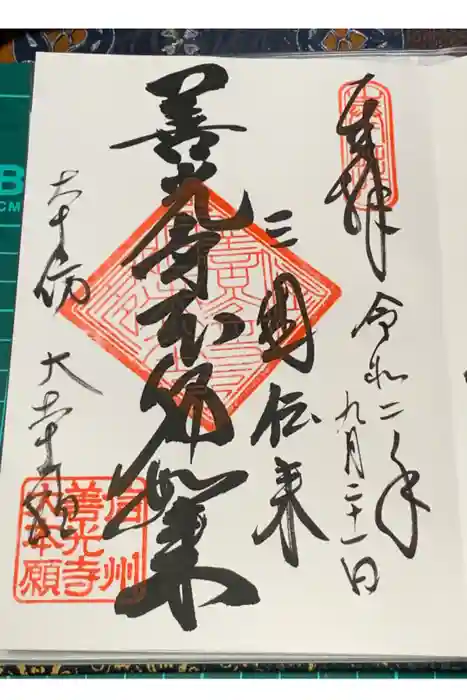 奉拝
令和二年
九月二十一日
三国伝来
善光寺本師如来
大本願
信州
善光寺
大本願